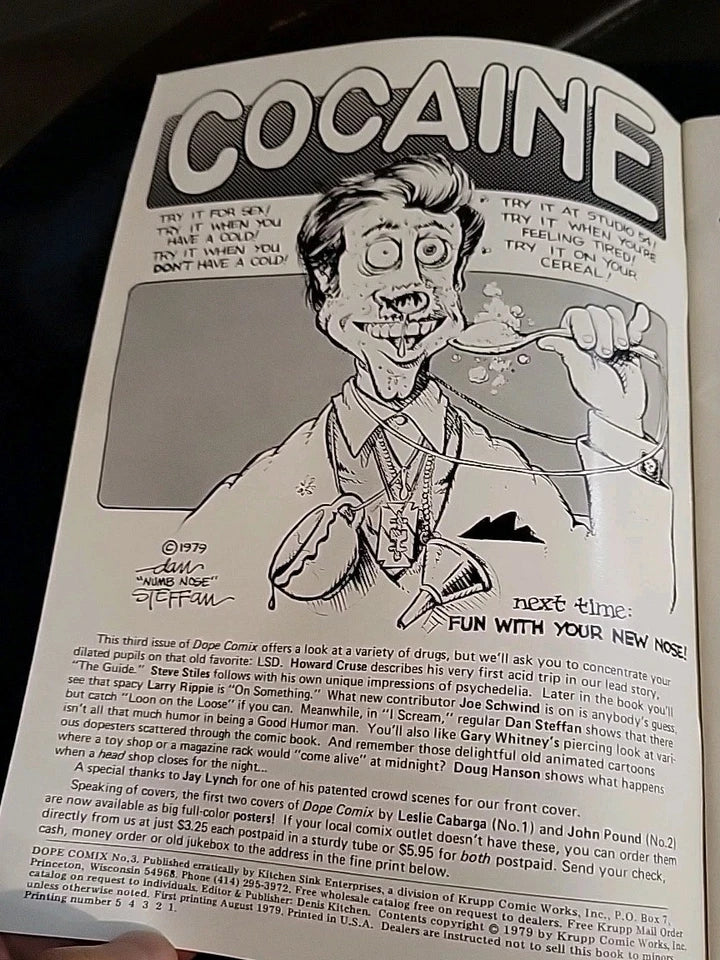 COCAINE
TRY IT FOR SEX!
TRY IT WHEN YOU
HAVE A COLD!
TRY IT WHEN YOU
DON'T HAVE A COLD!
TRY IT AT STUDIO 54!
TRY IT WHEN YOU'RE
FEELING TIRED!
TRY IT ON YOUR
CEREAL!
©1979
dan
"NUMB NOSE"
STEFFan
next time:
FUN WITH YOUR NEW NOSE!
This third issue of Dope Comix offers a look at a variety of drugs, but we'll ask you to concentrate your
dilated pupils on that old favorite: LSD. Howard Cruse describes his very first acid trip in our lead story,
"The Guide." Steve Stiles follows with his own unique impressions of psychedelia. Later in the book you'll
see that spacy Larry Rippie is "On Something." What new contributor Joe Schwind is on is anybody's guess,
but catch "Loon on the Loose" if you can. Meanwhile, in "I Scream," regular Dan Steffan shows that there
isn't all that much humor in being a Good Humor man. You'll also like Gary Whitney's piercing look at vari-
ous dopesters scattered through the comic book. And remember those delightful old animated cartoons
where a toy shop or a magazine rack would "come alive" at midnight? Doug Hanson shows what happens
when a head shop closes for the night...
A special thanks to Jay Lynch for one of his patented crowd scenes for our front cover.
Speaking of covers, the first two covers of Dope Comix by Leslie Cabarga (No.1) and John Pound (No.2)
are now available as big full-color posters! If your local comix outlet doesn't have these, you can order them
directly from us at just $3.25 each postpaid in a sturdy tube or $5.95 for both postpaid. Send your check,
cash, money order or old jukebox to the address in the fine print below.
DOPE COMIX No.3. Published erratically by Kitchen Sink Enterprises, a division of Krupp Comic Works, Inc., P.O. Box 7,
Princeton, Wisconsin 54968. Phone (414) 295-3972. Free wholesale catalog free on request to dealers. Free Krupp Mail Order
catalog on request to individuals. Editor & Publisher: Denis Kitchen. Contents copyright © 1979 by Krupp Comic Works, Inc.
unless otherwise noted. First printing August 1979. Printed in U.S.A. Dealers are instructed not to sell this book to minors.
Printing number 5 4 3 2 1.